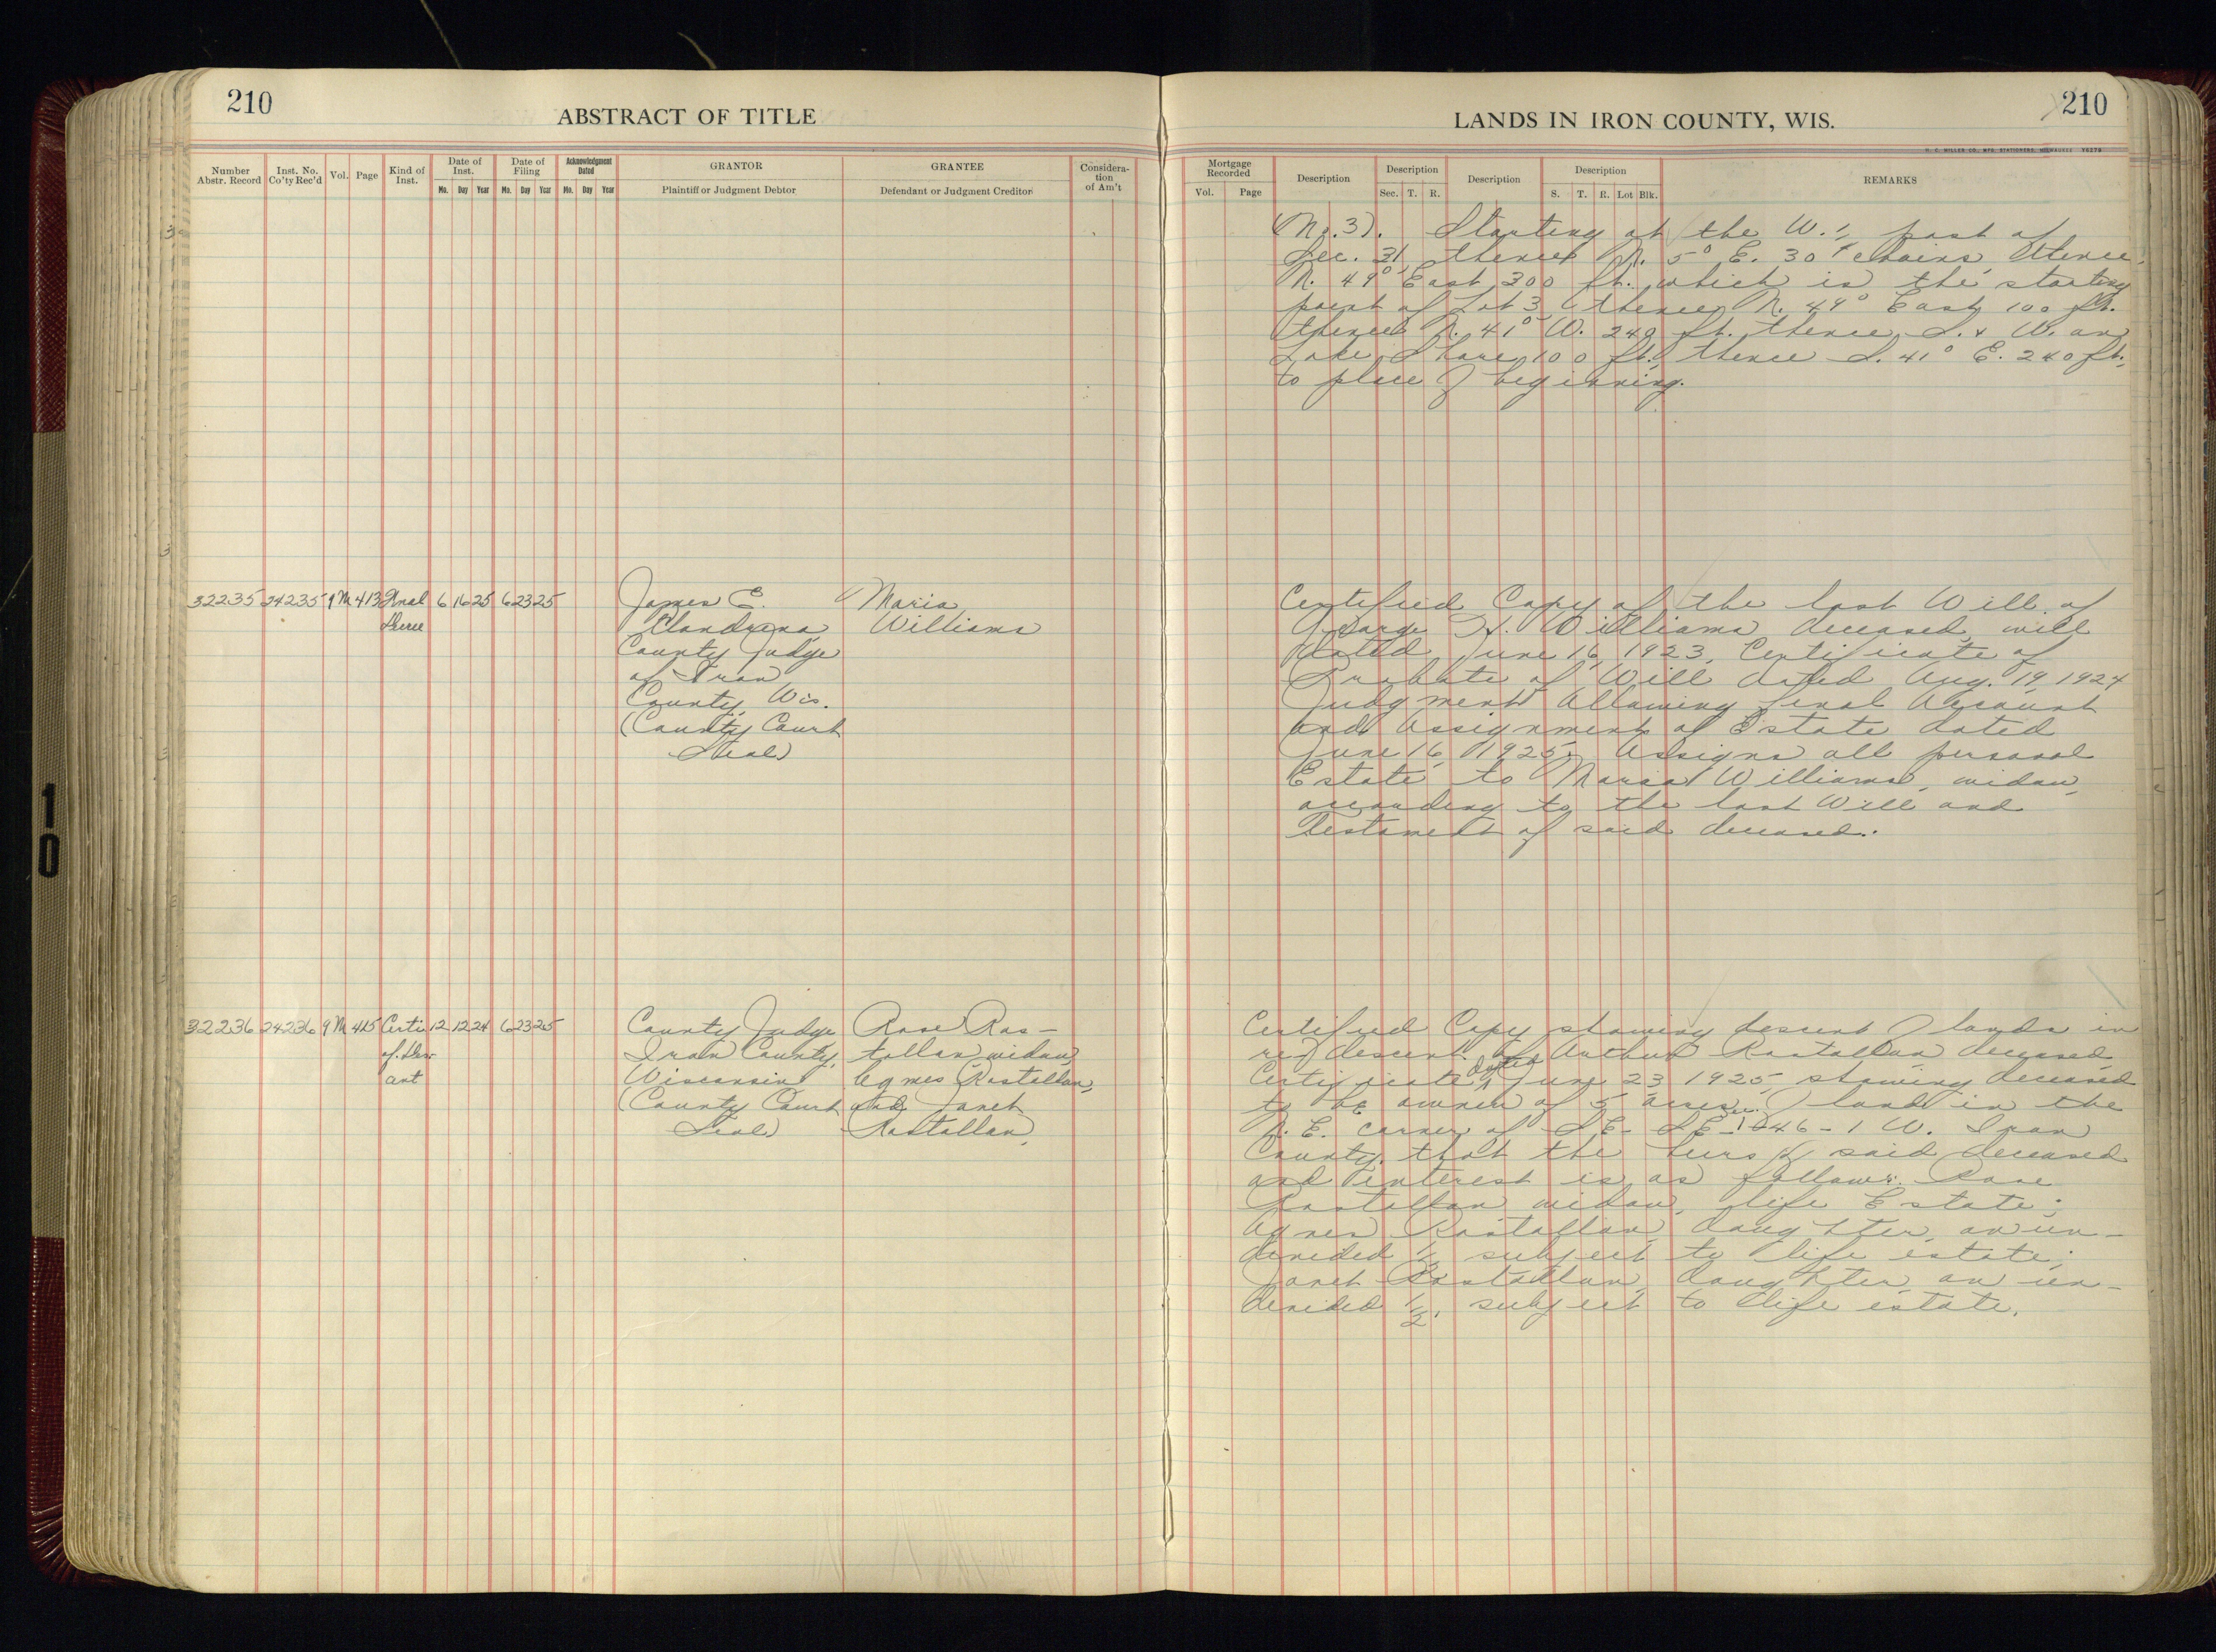 210
ABSTRACT OF TITLE
Number Abstr. Record
Inst. No. Co'ty Rec'd
Vol.
Page
Kind of Inst.
Date of Inst.
Mo. Day Year
Date of Filing
Mo. Day Year
Acknowledgment Dated
Mo. Day Year
GRANTOR
Plaintiff or Judgment Debtor
GRANTEE
Defendant or Judgment Creditor
Considera-
tion
of Am't
32235 24235 9 M 413 Final 6 16 25 6 23 25 James E. Maria
Decree Williams
County Judge
of Iron
County, Wis.
(County Court
Seal)
32236 24236 9 M 415 Certi 12 12 24 6 23 25 County Judge Rose Ras-
of Des- Iron County, tallan, widow,
ant Wisconsin Agnes Rastallan,
(County Court and Janet
Seal) Rastallan.
LANDS IN IRON COUNTY, WIS.
210
Mortgage Recorded
Vol. Page
Description
Description
Sec. T. R.
Description
Description
S. T. R. Lot Blk.
REMARKS
(No. 3). Starting at the W. ¼ post of
Sec. 31, thence N. 5° E. 30 chains, thence
N. 49° East 300 ft. which is the starting
point of Lot 3, thence N. 49° East 100 ft.
thence N. 41° W. 240 ft. thence S. & W. on
Lake Shore 100 ft., thence S. 41° E. 240 ft.
to place of beginning.
Certified Copy of the last Will of
George H. Williams deceased, will
dated June 16, 1923, Certificate of
Probate of Will dated Aug. 19, 1924
Judgment Allowing final Account
and Assignment of Estate dated
June 16, 1925. Assigns all personal
Estate to Maria Williams, widow,
according to the last Will and
Testament of said deceased.
Certified Copy showing descent of lands in
re descent of Arthur Rastallan deceased,
Certificate dated June 23 1925, showing deceased
to be owner of 5 acres of land in the
N. E. corner of SE - SE - 46 - 1 W. Iron
County, that the heirs of said deceased
and interest is as follows: Rose
Rastallan widow, life Estate;
Agnes Rastallan, daughter, an un-
divided ½ subject to life estate;
Janet Rastallan, daughter, an un-
divided ½, subject to life estate.